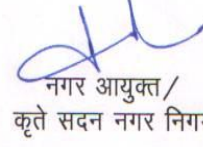 नगर आयुक्त/
कृते सदन नगर निग